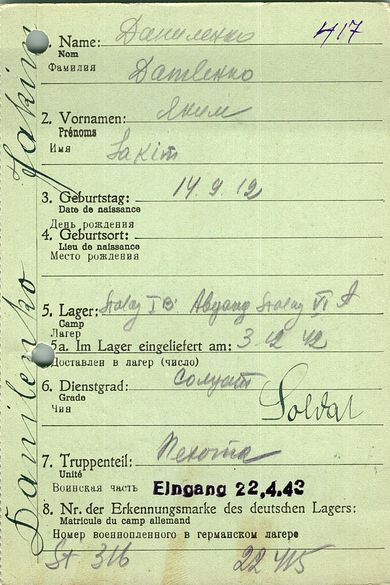 417
1. Name: Даниленко
Nom
Фамилия Danilenko
2. Vornamen: Яким
Prénoms
Имя Jakim
3. Geburtstag: 14.9.12
Date de naissance
День рождения
4. Geburtsort:
Lieu de naissance
Место рождения
5. Lager: Stalag I B Abgang Stalag VI A
Camp
Лагерь
5a. Im Lager eingeliefert am: 3.12.42
Доставлен в лагерь (число)
6. Dienstgrad: Солдат
Grade
Чин Soldat
7. Truppenteil: Пехота
Unité
Воинская часть Eingang 22.4.43
8. Nr. der Erkennungsmarke des deutschen Lagers:
Matricule du camp allemand
Номер военнопленного в германском лагере
St 316 22415
Danilenko Jakim